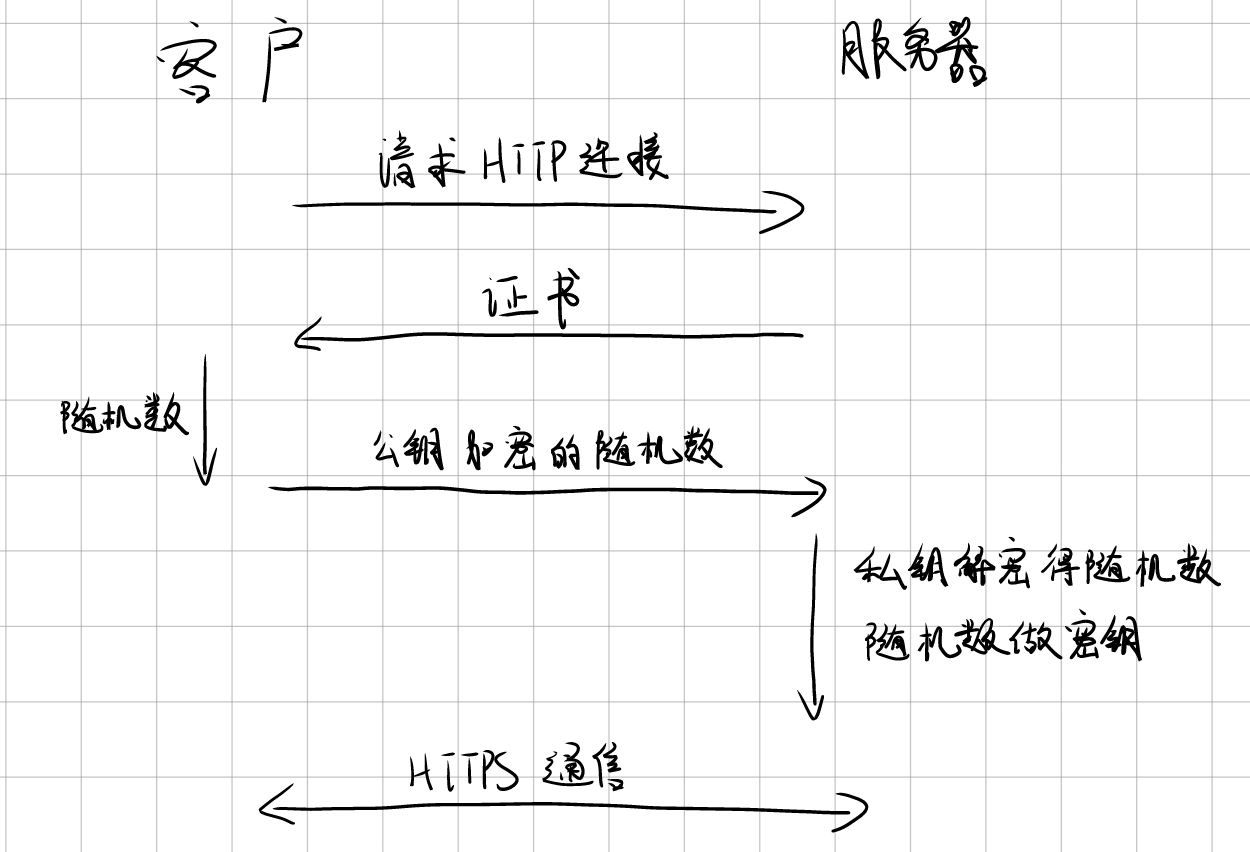 客户
服务器
请求HTTP连接
证书
随机数
公钥加密的随机数
私钥解密得随机数
随机数做密钥
HTTPS 通信